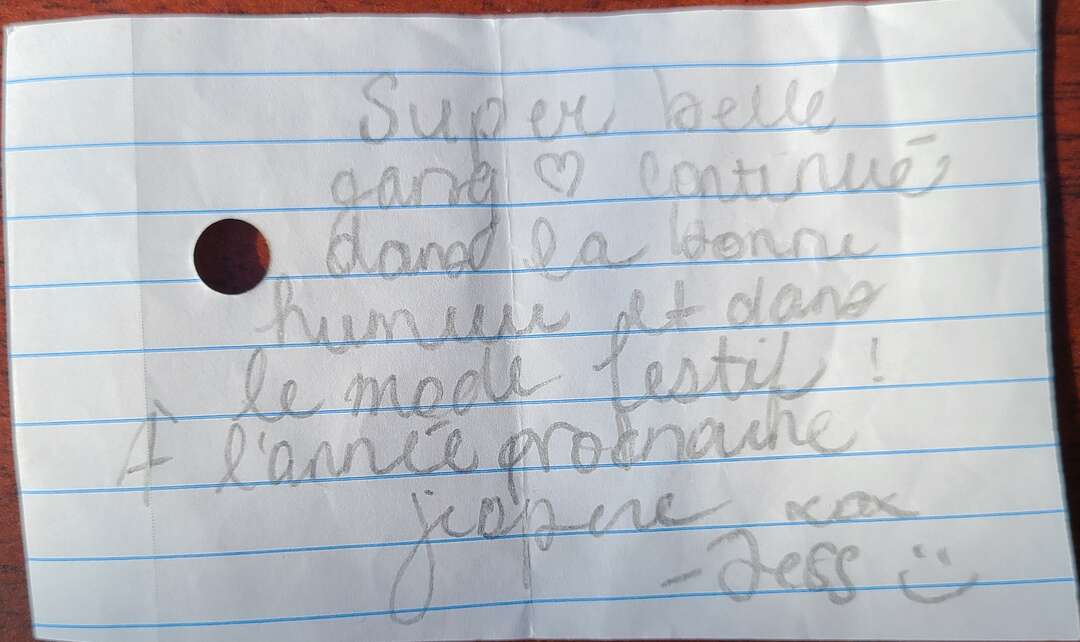 Super belle
gang ♡ continué
dans la bonne
humeur et dans
le mode festif !
À l'année prochaine
j'espère xoxox
- Jess :)